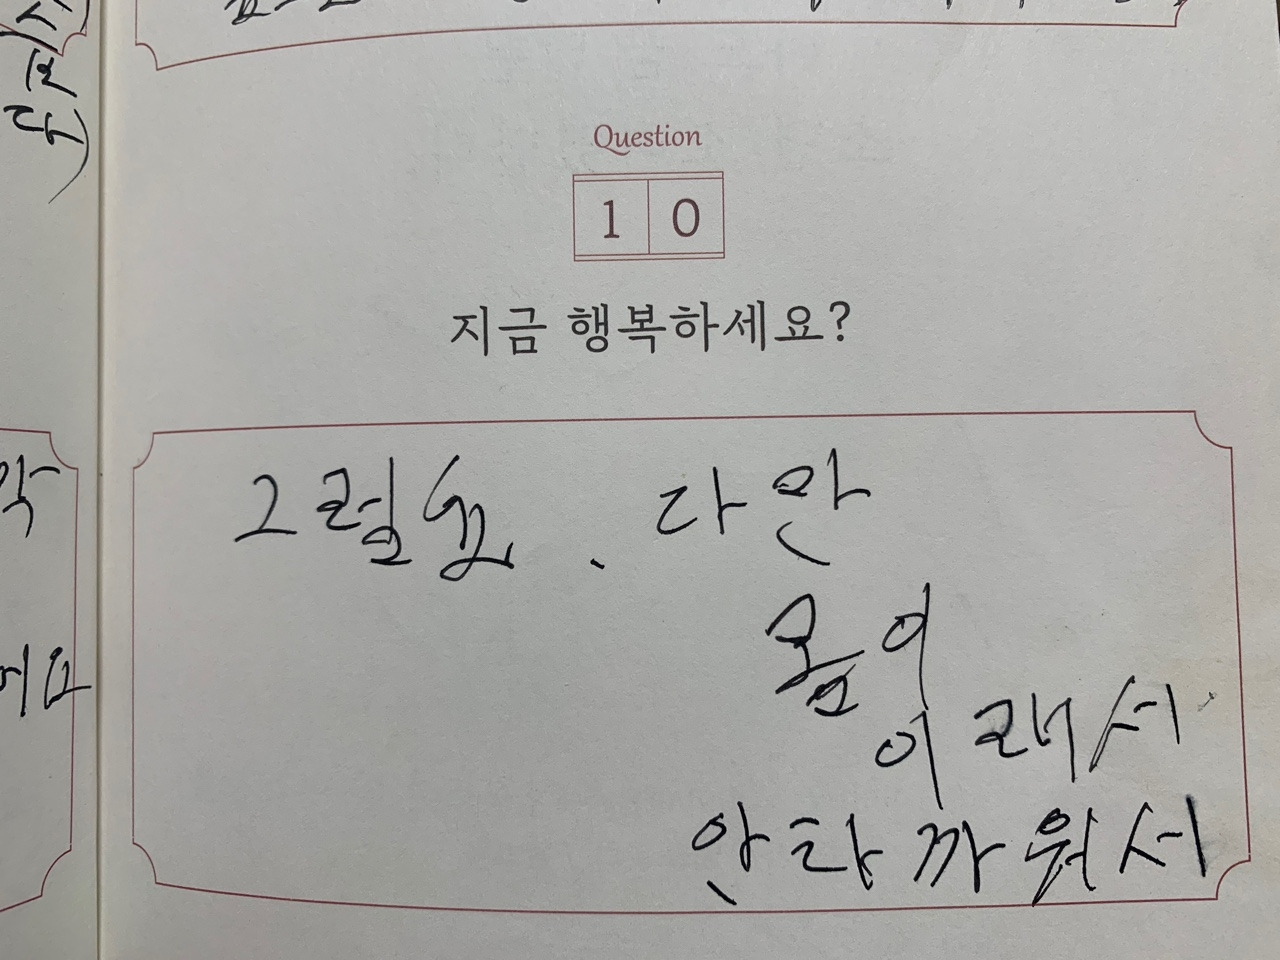 Question
10
지금 행복하세요?
그럼요. 다만
몸이
이래서
안타까워서
어요